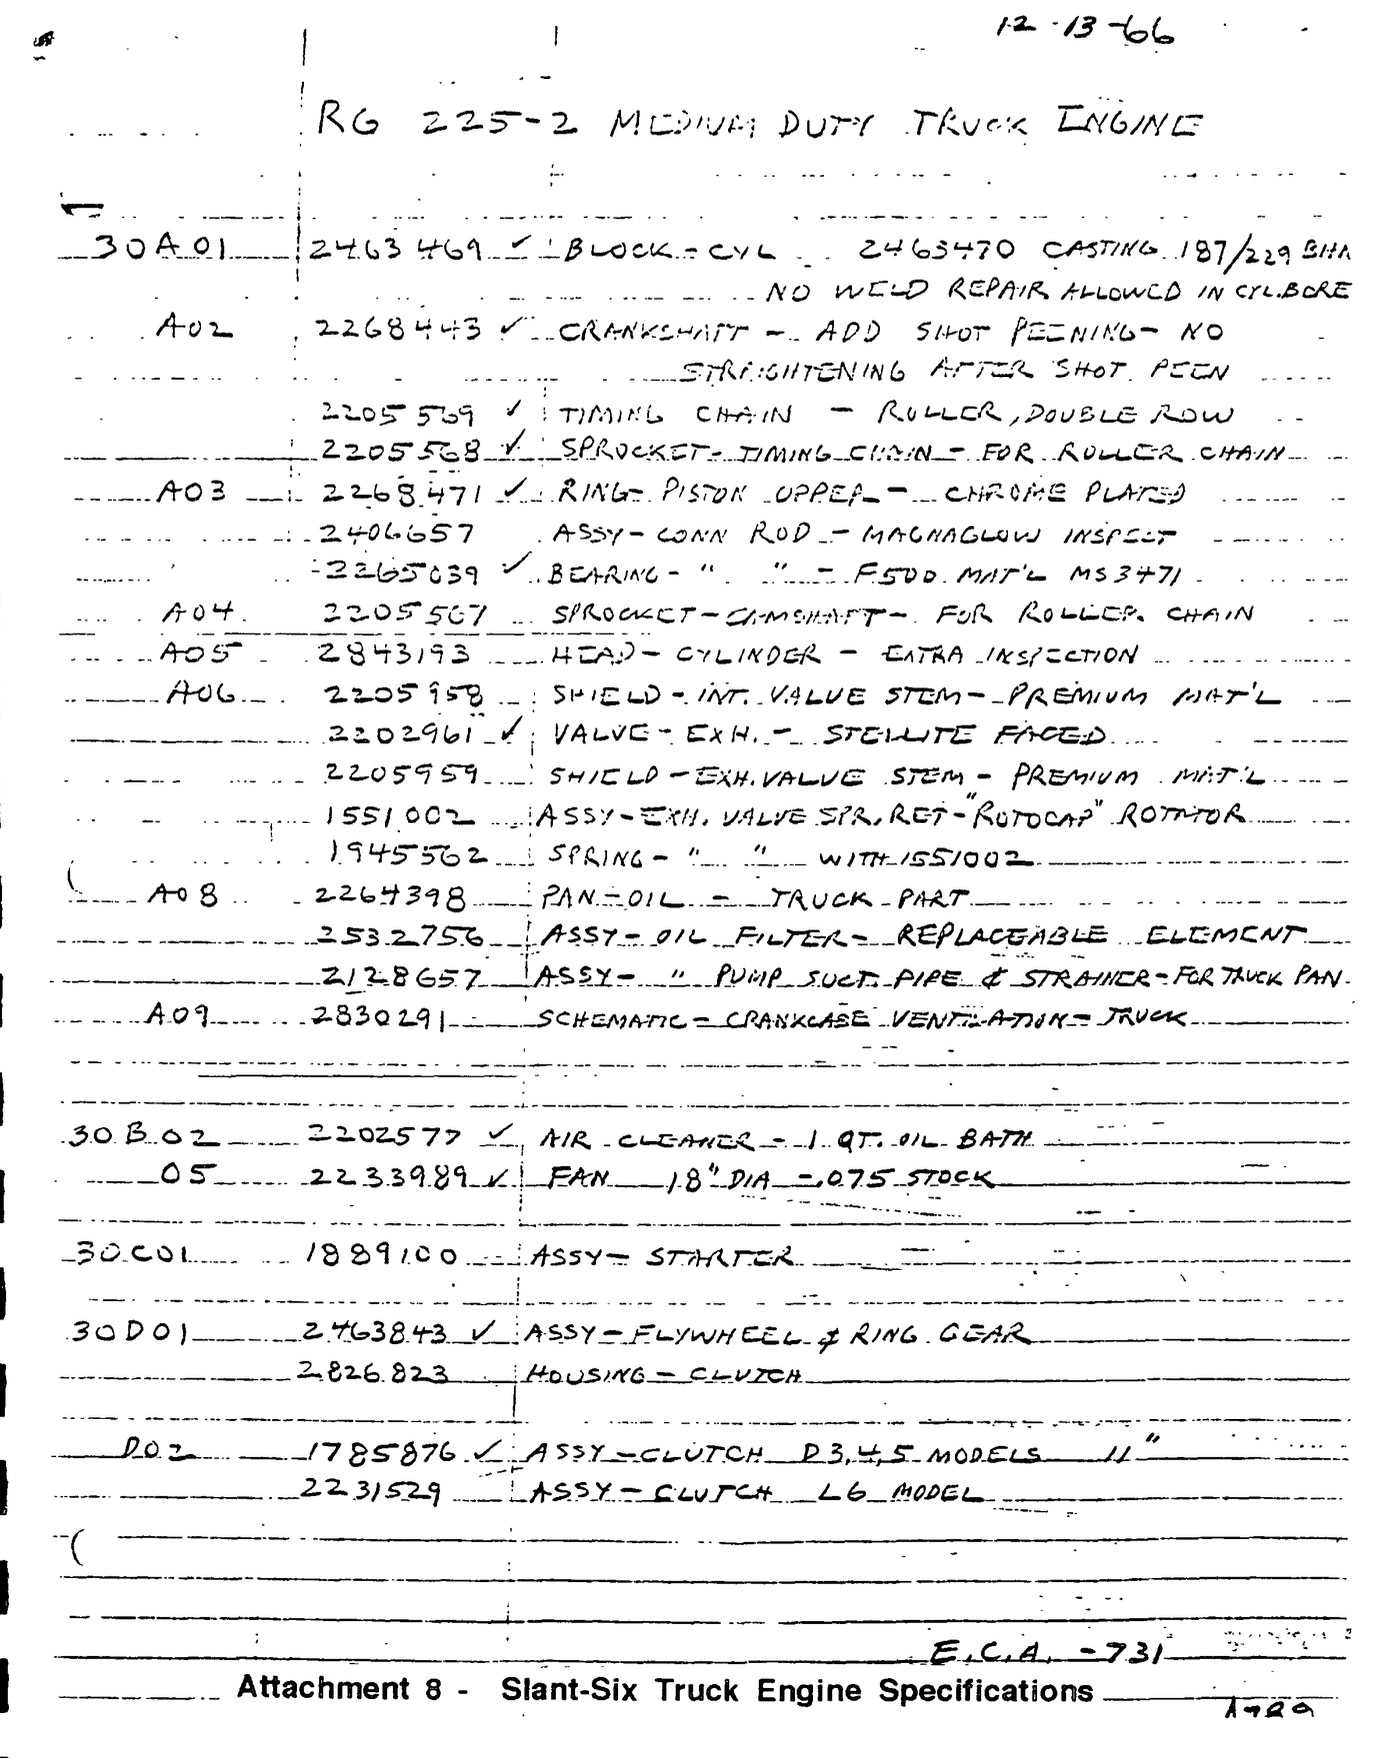 12-13-66
RG 225-2 MEDIUM DUTY TRUCK ENGINE
30A01 2463469 ✓ BLOCK-CYL 2463470 CASTING 187/229 BHN
NO WELD REPAIR ALLOWED IN CYL.BORE
A02 2268443 ✓ CRANKSHAFT - ADD SHOT PEENING- NO
STRAIGHTENING AFTER SHOT PEEN
2205569 ✓ TIMING CHAIN - ROLLER, DOUBLE ROW
2205568 ✓ SPROCKET- TIMING CHAIN - FOR ROLLER CHAIN
A03 2268471 ✓ RING- PISTON UPPER - CHROME PLATED
2406657 ASSY-CONN ROD - MAGNAGLOW INSPECT
2265039 ✓ BEARING- " " - F500 MAT'L MS3471
A04 2205567 SPROCKET-CAMSHAFT- FOR ROLLER CHAIN
A05 2843193 HEAD- CYLINDER - EXTRA INSPECTION
A06 2205958 SHIELD-INT. VALVE STEM- PREMIUM MAT'L
2202961 ✓ VALVE- EXH. - STELLITE FACED
2205959 SHIELD-EXH. VALVE STEM- PREMIUM MAT'L
1551002 ASSY-EXH. VALVE SPR. RET-"ROTOCAP" ROTATOR
1945562 SPRING- " " WITH 1551002
A08 2264398 PAN-OIL - TRUCK PART
2532756 ASSY-OIL FILTER- REPLACEABLE ELEMENT
2128657 ASSY- " PUMP SUCT. PIPE & STRAINER-FOR TRUCK PAN
A09 2830291 SCHEMATIC- CRANKCASE VENTILATION- TRUCK
30B02 2202577 ✓ AIR CLEANER- 1 QT. OIL BATH
05 2233989 ✓ FAN 18" DIA -.075 STOCK
30C01 1889100 ASSY- STARTER
30D01 2463843 ✓ ASSY-FLYWHEEL & RING GEAR
2826823 HOUSING- CLUTCH
D02 1785876 ✓ ASSY-CLUTCH D3,4,5 MODELS 11"
2231529 ASSY-CLUTCH L6 MODEL
E.C.A. -731
Attachment 8 - Slant-Six Truck Engine Specifications